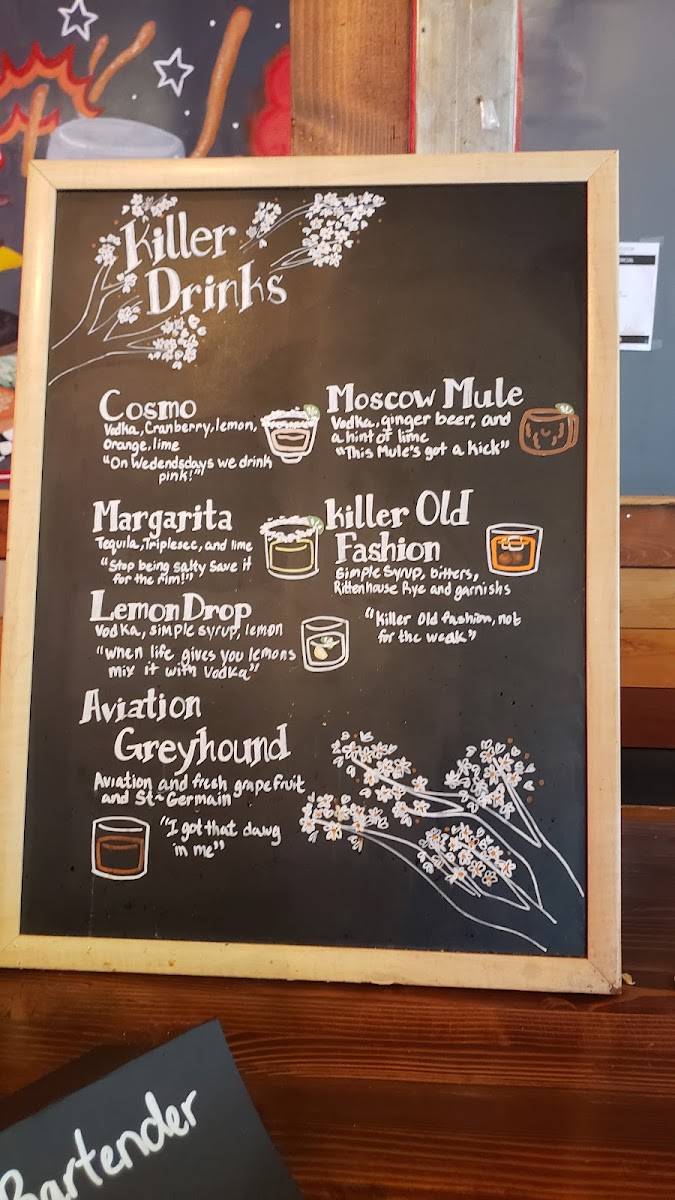 Killer
Drinks
Cosmo
Vodka, Cranberry, lemon,
Orange, lime
"On Wedendsdays we drink
pink!"
Margarita
Tequila, Triplesec, and lime
"Stop being salty save it
for the rim!"
Lemon Drop
Vodka, simple syrup, lemon
"When life gives you lemons
mix it with Vodka"
Aviation
Greyhound
Aviation and fresh grapefruit
and St-Germain
"I got that dawg
in me"
Moscow Mule
Vodka, ginger beer, and
a hint of lime
"This Mule's got a kick"
Killer Old
Fashion
Simple Syrup, bitters,
Rittenhouse Rye and garnishs
"Killer Old fashion, not
for the weak"
Bartender